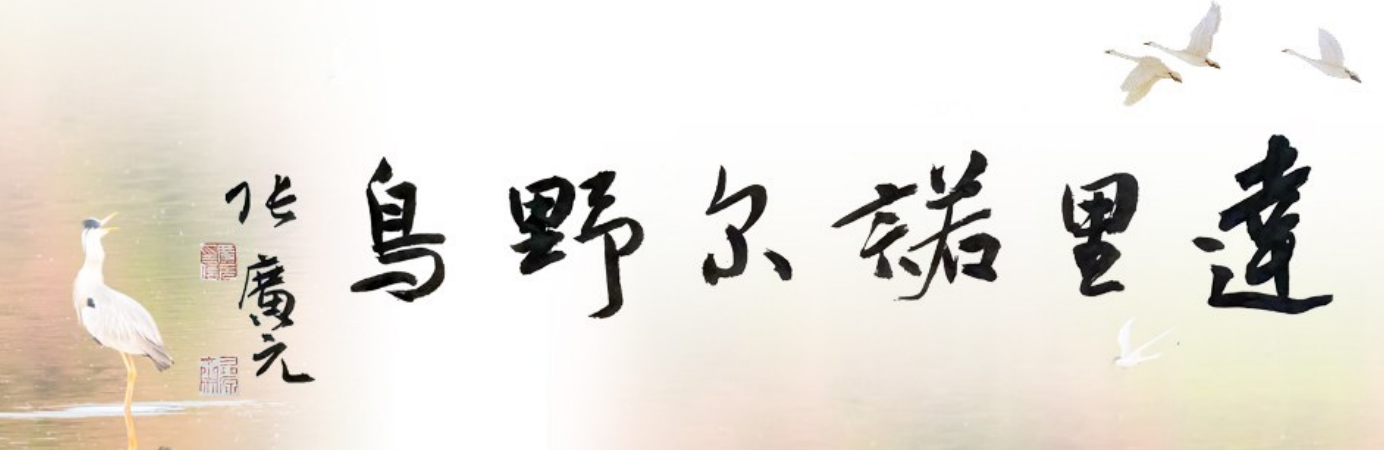 達里諾尔野鳥
张廣元